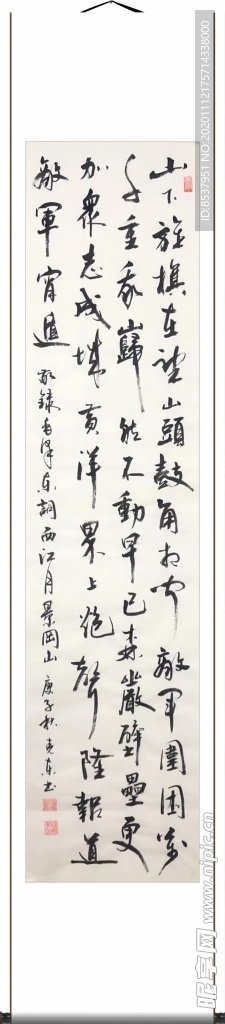 山下旌旗在望山頭鼓角相聞敵軍圍困萬
千重我巋然不動早已森嚴壁壘更
加眾志成城黃洋界上炮聲隆報道
敵軍宵遁
敬錄毛澤東詞西江月景岡山 庚子秋 克東书
ID:8537951 NO:20201112175714338000
昵享网 www.nipic.cn